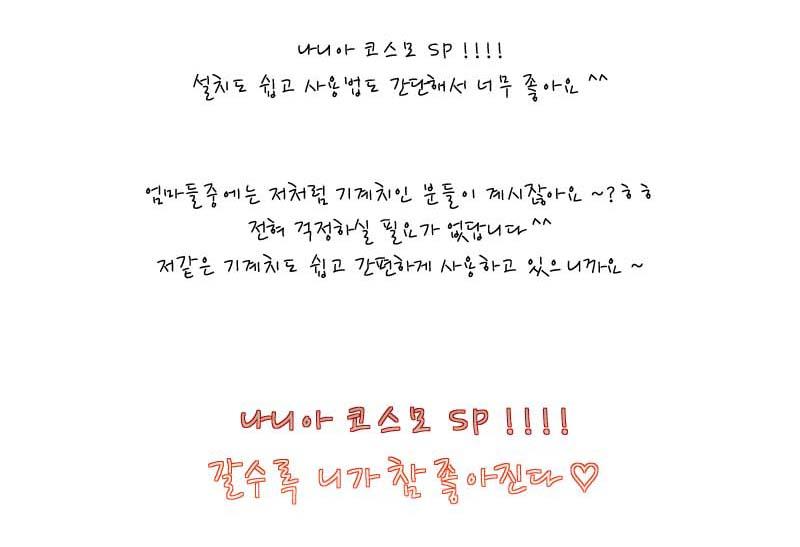 나니아 코스모 SP !!!!
설치도 쉽고 사용법도 간단해서 너무 좋아요 ^^
엄마들중에는 저처럼 기계치인 분들이 계시잖아요 ~?ㅎㅎ
전혀 걱정하실 필요가 없답니다^^
저같은 기계치도 쉽고 간편하게 사용하고 있으니까요 ~
나니아 코스모 SP !!!!
갈수록 니가 참 좋아진다♡